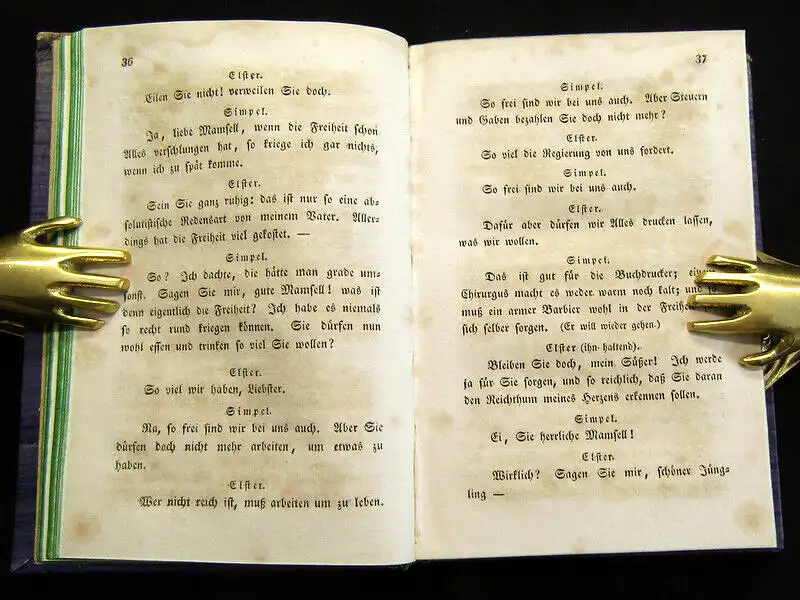 36
Elster.
Eilen Sie nicht! verweilen Sie doch.
Simpel.
Ja, liebe Mamsell, wenn die Freiheit schon
Alles verschlungen hat, so kriege ich gar nichts,
wenn ich zu spät komme.
Elster.
Sein Sie ganz ruhig: das ist nur so eine ab-
solutistische Redensart von meinem Vater. Aller-
dings hat die Freiheit viel gekostet. —
Simpel.
So? Ich dachte, die hätte man grade um-
sonst. Sagen Sie mir, gute Mamsell! was ist
denn eigentlich die Freiheit? Ich habe es niemals
so recht rund kriegen können. Sie dürfen nun
wohl essen und trinken so viel Sie wollen?
Elster.
So viel wir haben, Liebster.
Simpel.
Na, so frei sind wir bei uns auch. Aber Sie
dürfen doch nicht mehr arbeiten, um etwas zu
haben.
Elster.
Wer nicht reich ist, muß arbeiten um zu leben.
37
Simpel.
So frei sind wir bei uns auch. Aber Steuern
und Gaben bezahlen Sie doch nicht mehr?
Elster.
So viel die Regierung von uns fordert.
Simpel.
So frei sind wir bei uns auch.
Elster.
Dafür aber dürfen wir Alles drucken lassen,
was wir wollen.
Simpel.
Das ist gut für die Buchdrucker;
Chirurgus macht es weder warm noch kalt; und
muß ein armer Barbier wohl in der
sich selber sorgen. (Er will wieder gehen.)
Elster (ihn haltend).
Bleiben Sie doch, mein Süßer! Ich werde
ja für Sie sorgen, und so reichlich, daß Sie daran
den Reichthum meines Herzens erkennen sollen.
Simpel.
Ei, Sie herrliche Mamsell!
Elster.
Wirklich? Sagen Sie mir, schöner Jüng-
ling —